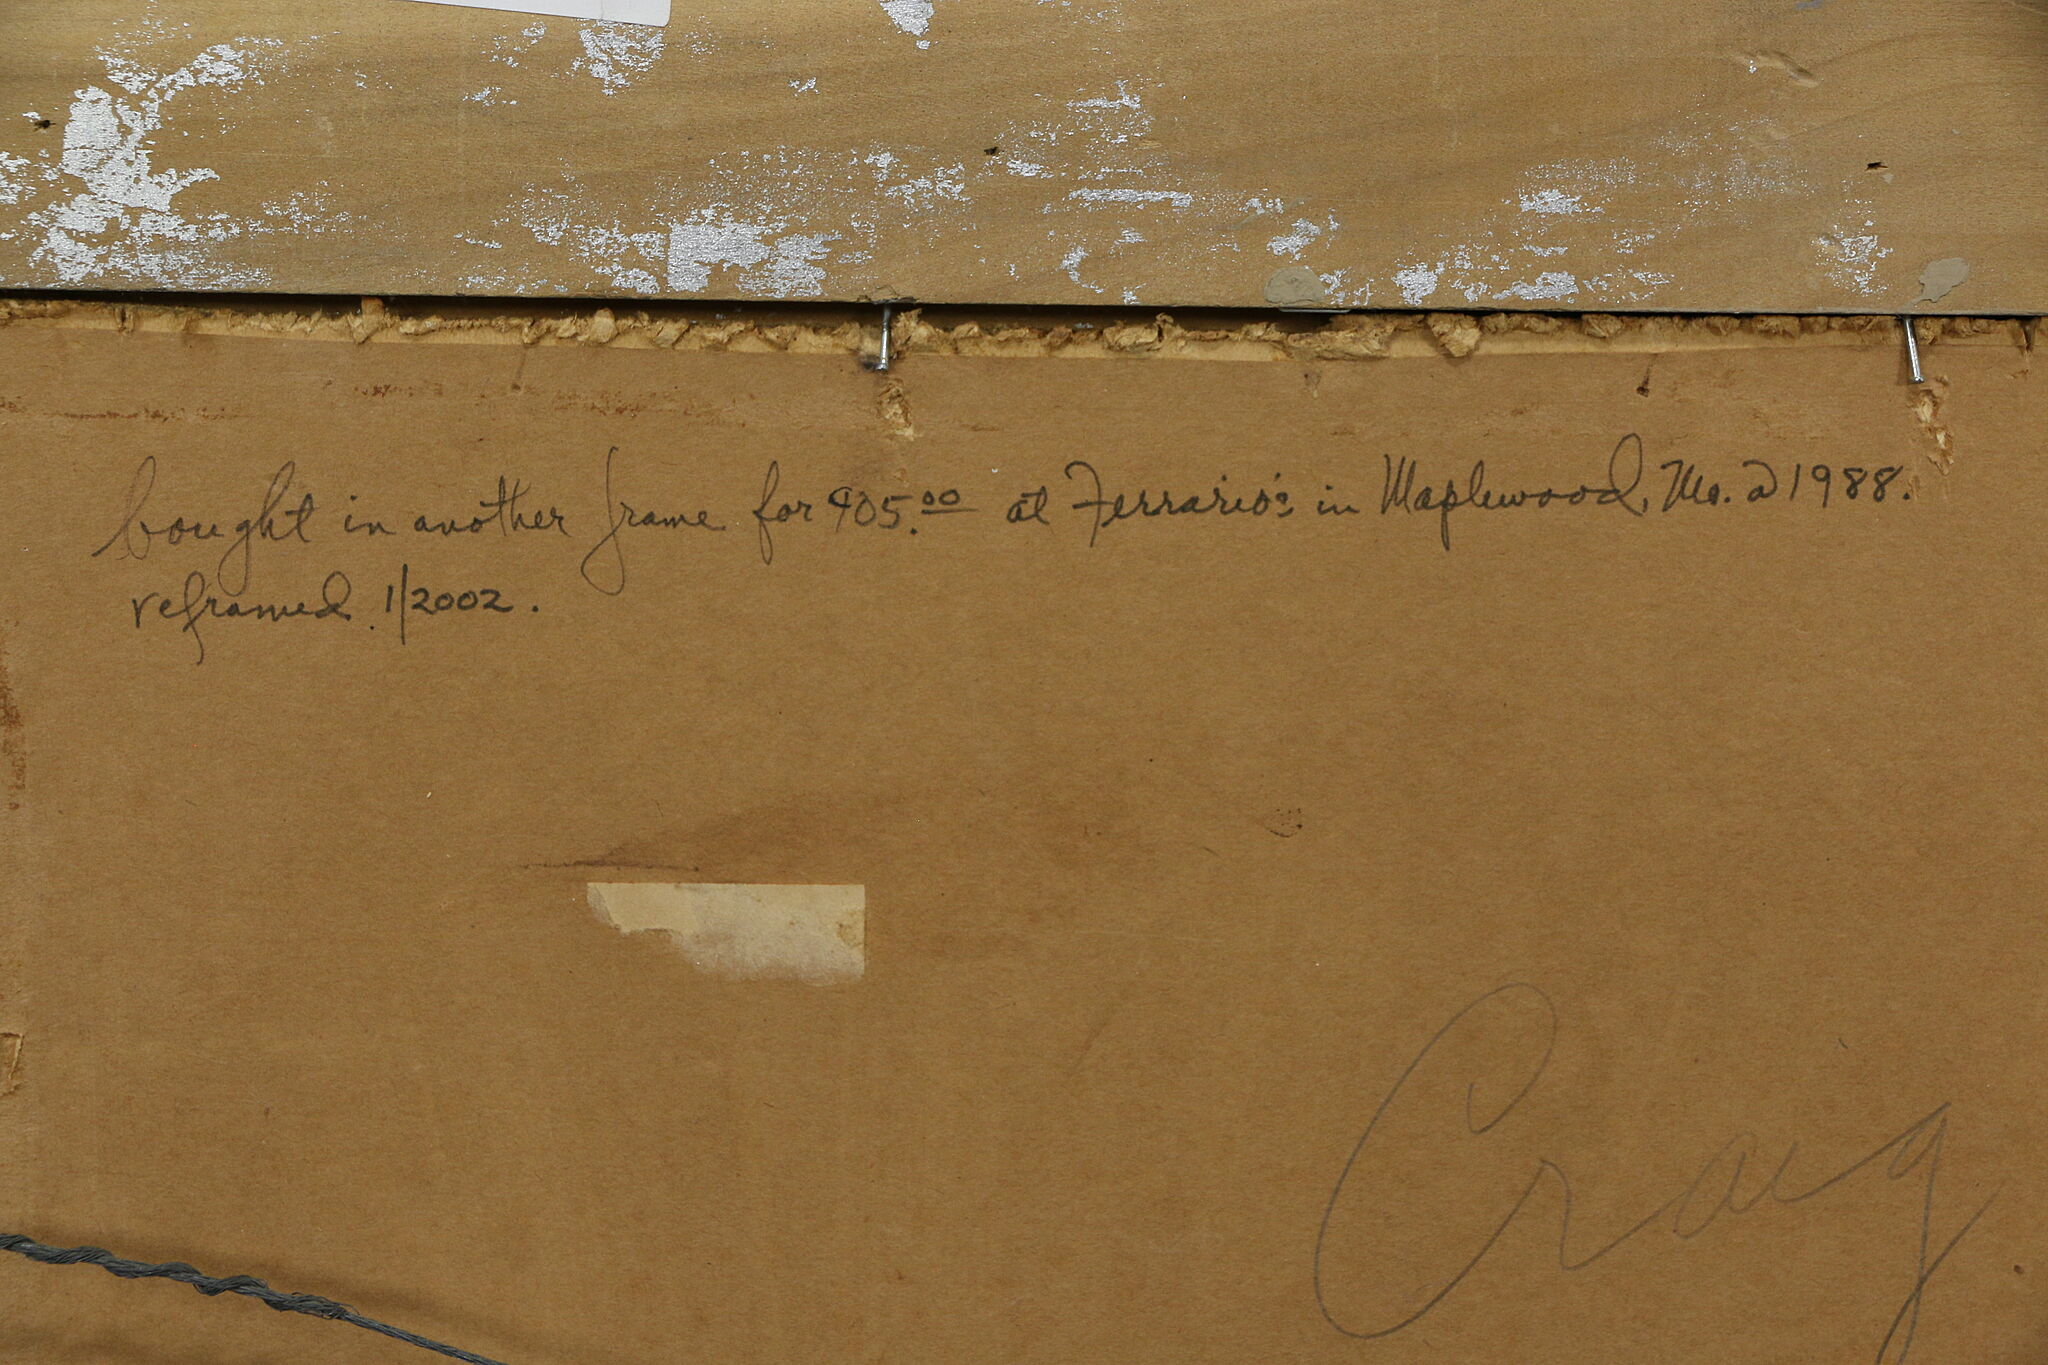 bought in another frame for 405.00 at Ferrario's in Maplewood, Mo. @ 1988.
reframed 1/2002.
Craig